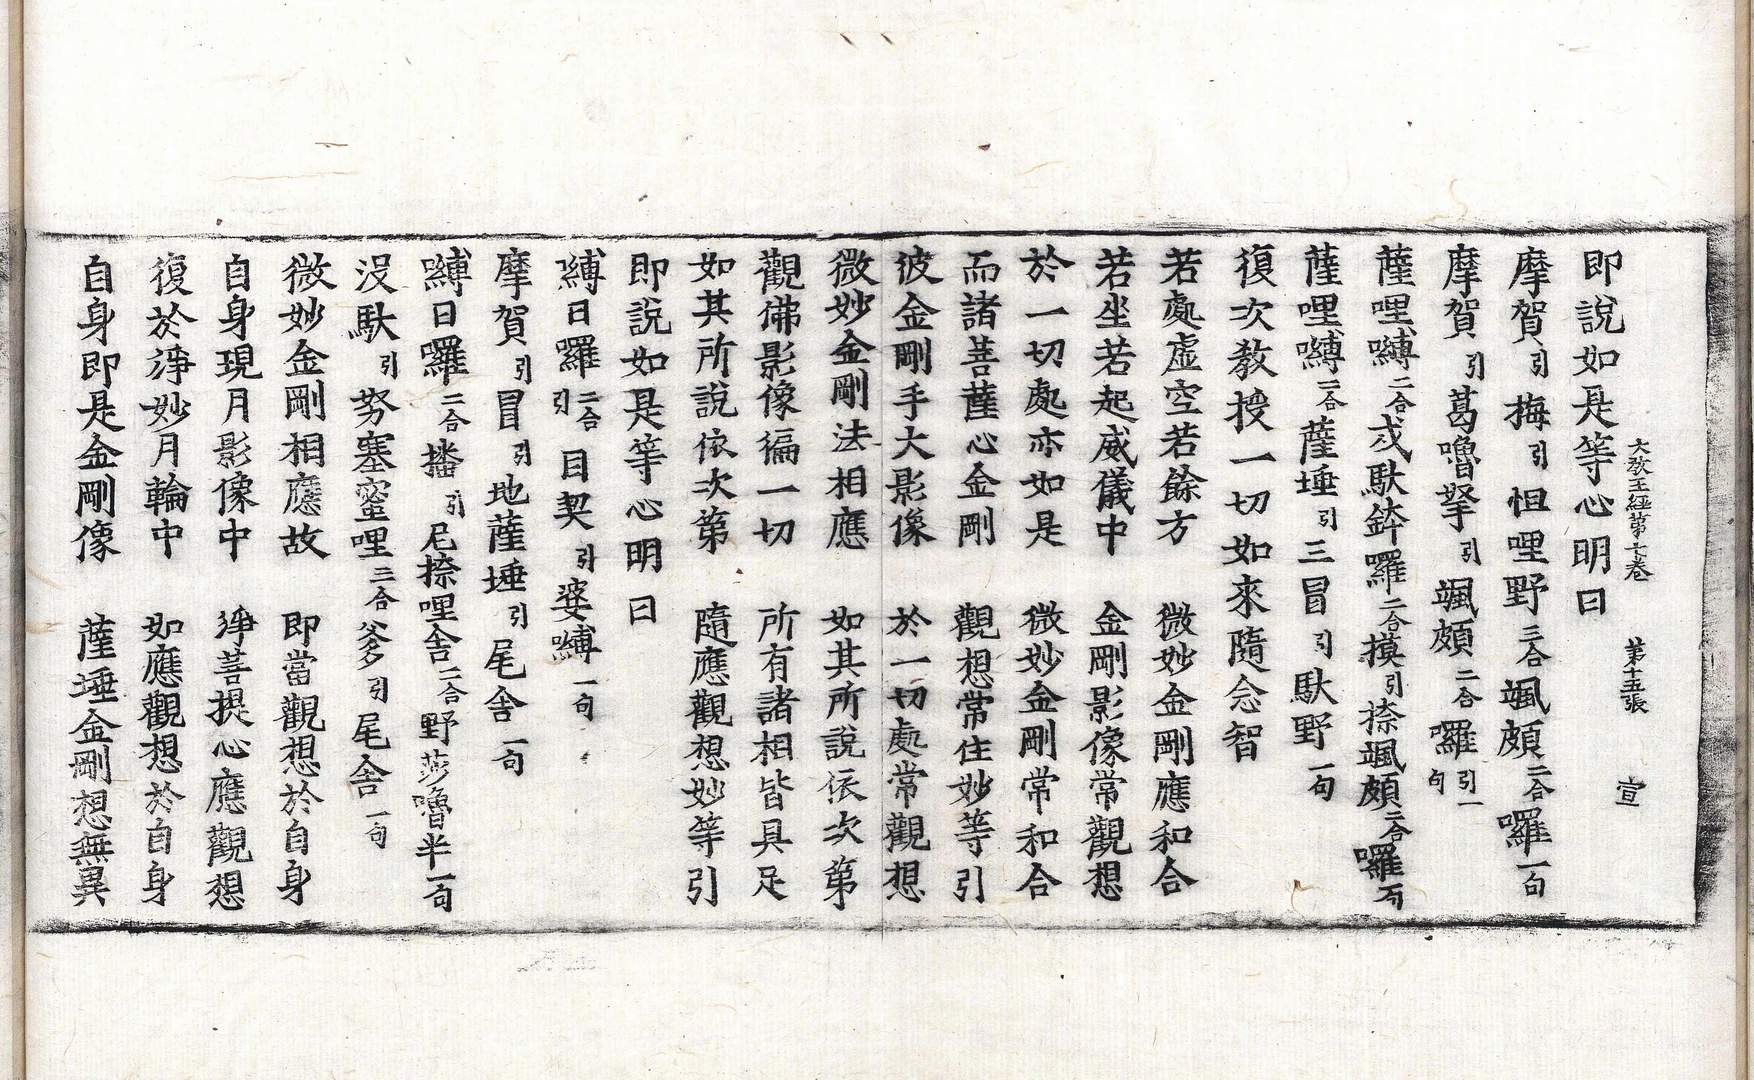 大教王經第十七卷　第十五張　宣
即說如是等心明曰
摩賀引梅引怛哩野三合颯頗二合囉一句
摩賀引葛嚕拏引颯頗二合囉引一句
薩哩嚩二合沒馱鉢囉二合摸引捺颯頗二合囉一句
薩哩嚩二合薩埵引三冒引馱野一句
復次教授一切如來隨念智
若處虛空若餘方　微妙金剛應和合
若坐若起威儀中　金剛影像常觀想
於一切處亦如是　微妙金剛常和合
而諸菩薩心金剛　觀想常住妙等引
彼金剛手大影像　於一切處常觀想
微妙金剛法相應　如其所說依次第
觀佛影像徧一切　所有諸相皆具足
如其所說依次第　隨應觀想妙等引
即說如是等心明曰
嚩日囉二合引目契引婆嚩一句
摩賀引冒引地薩埵引尾舍一句
嚩日囉二合播引尼捺哩舍二合野莎嚕半一句
沒馱引努塞蜜哩三合爹引尾舍一句
微妙金剛相應故　即當觀想於自身
自身現月影像中　淨菩提心應觀想
復於淨妙月輪中　如應觀想於自身
自身即是金剛像　薩埵金剛想無異